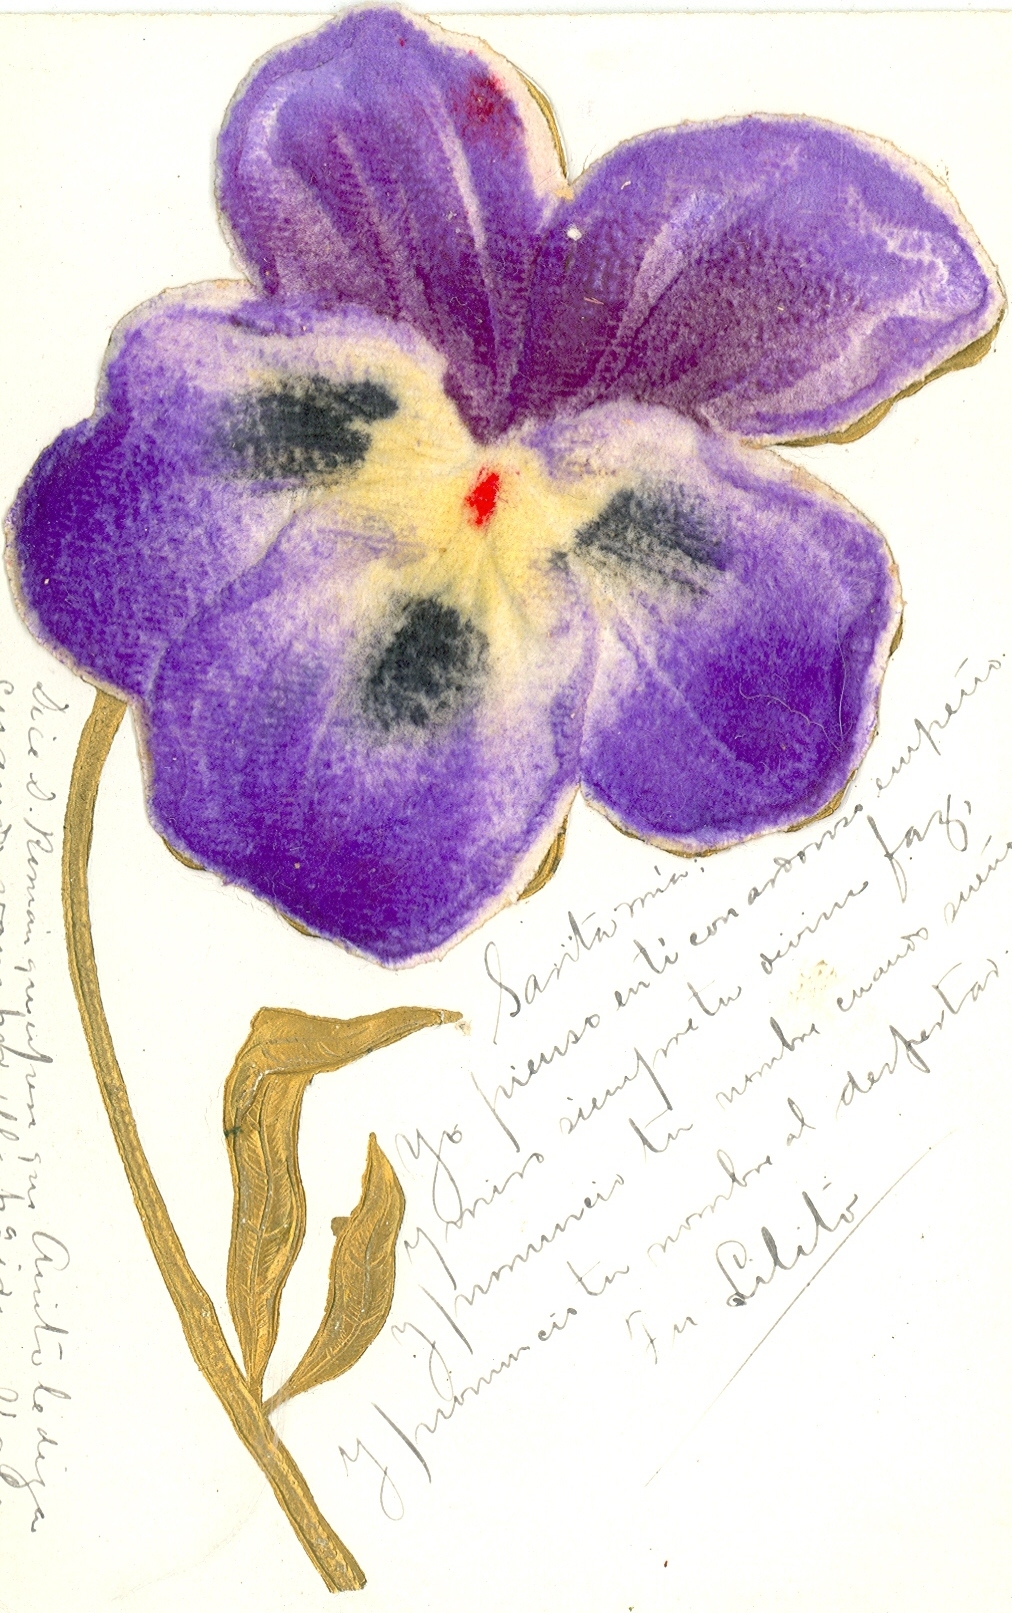 Sarita mia:
Yo pienso en ti con ardoroso empeño
y miro siempre tu divina faz,
y pronuncio tu nombre cuando sueño
y pronuncio tu nombre al despertar.
Tu Lilito
Dice D. Román que Anito le diga